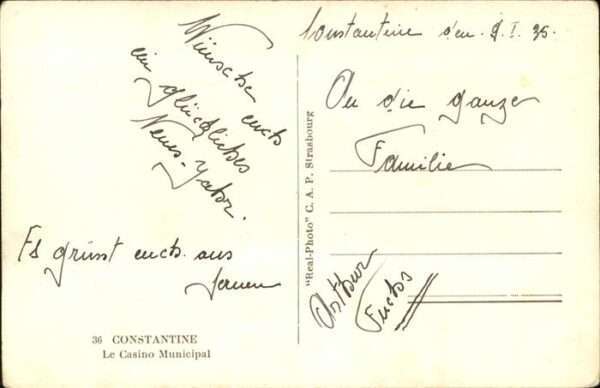 Wünsche euch
ein glückliches
Neues-Jahr.
Es grüsst euch aus
fernen
36 CONSTANTINE
Le Casino Municipal
"Real-Photo" C. A. P. Strasbourg
Constantine den I. 35.
An die ganze
Familie
Arthur
Fuchs